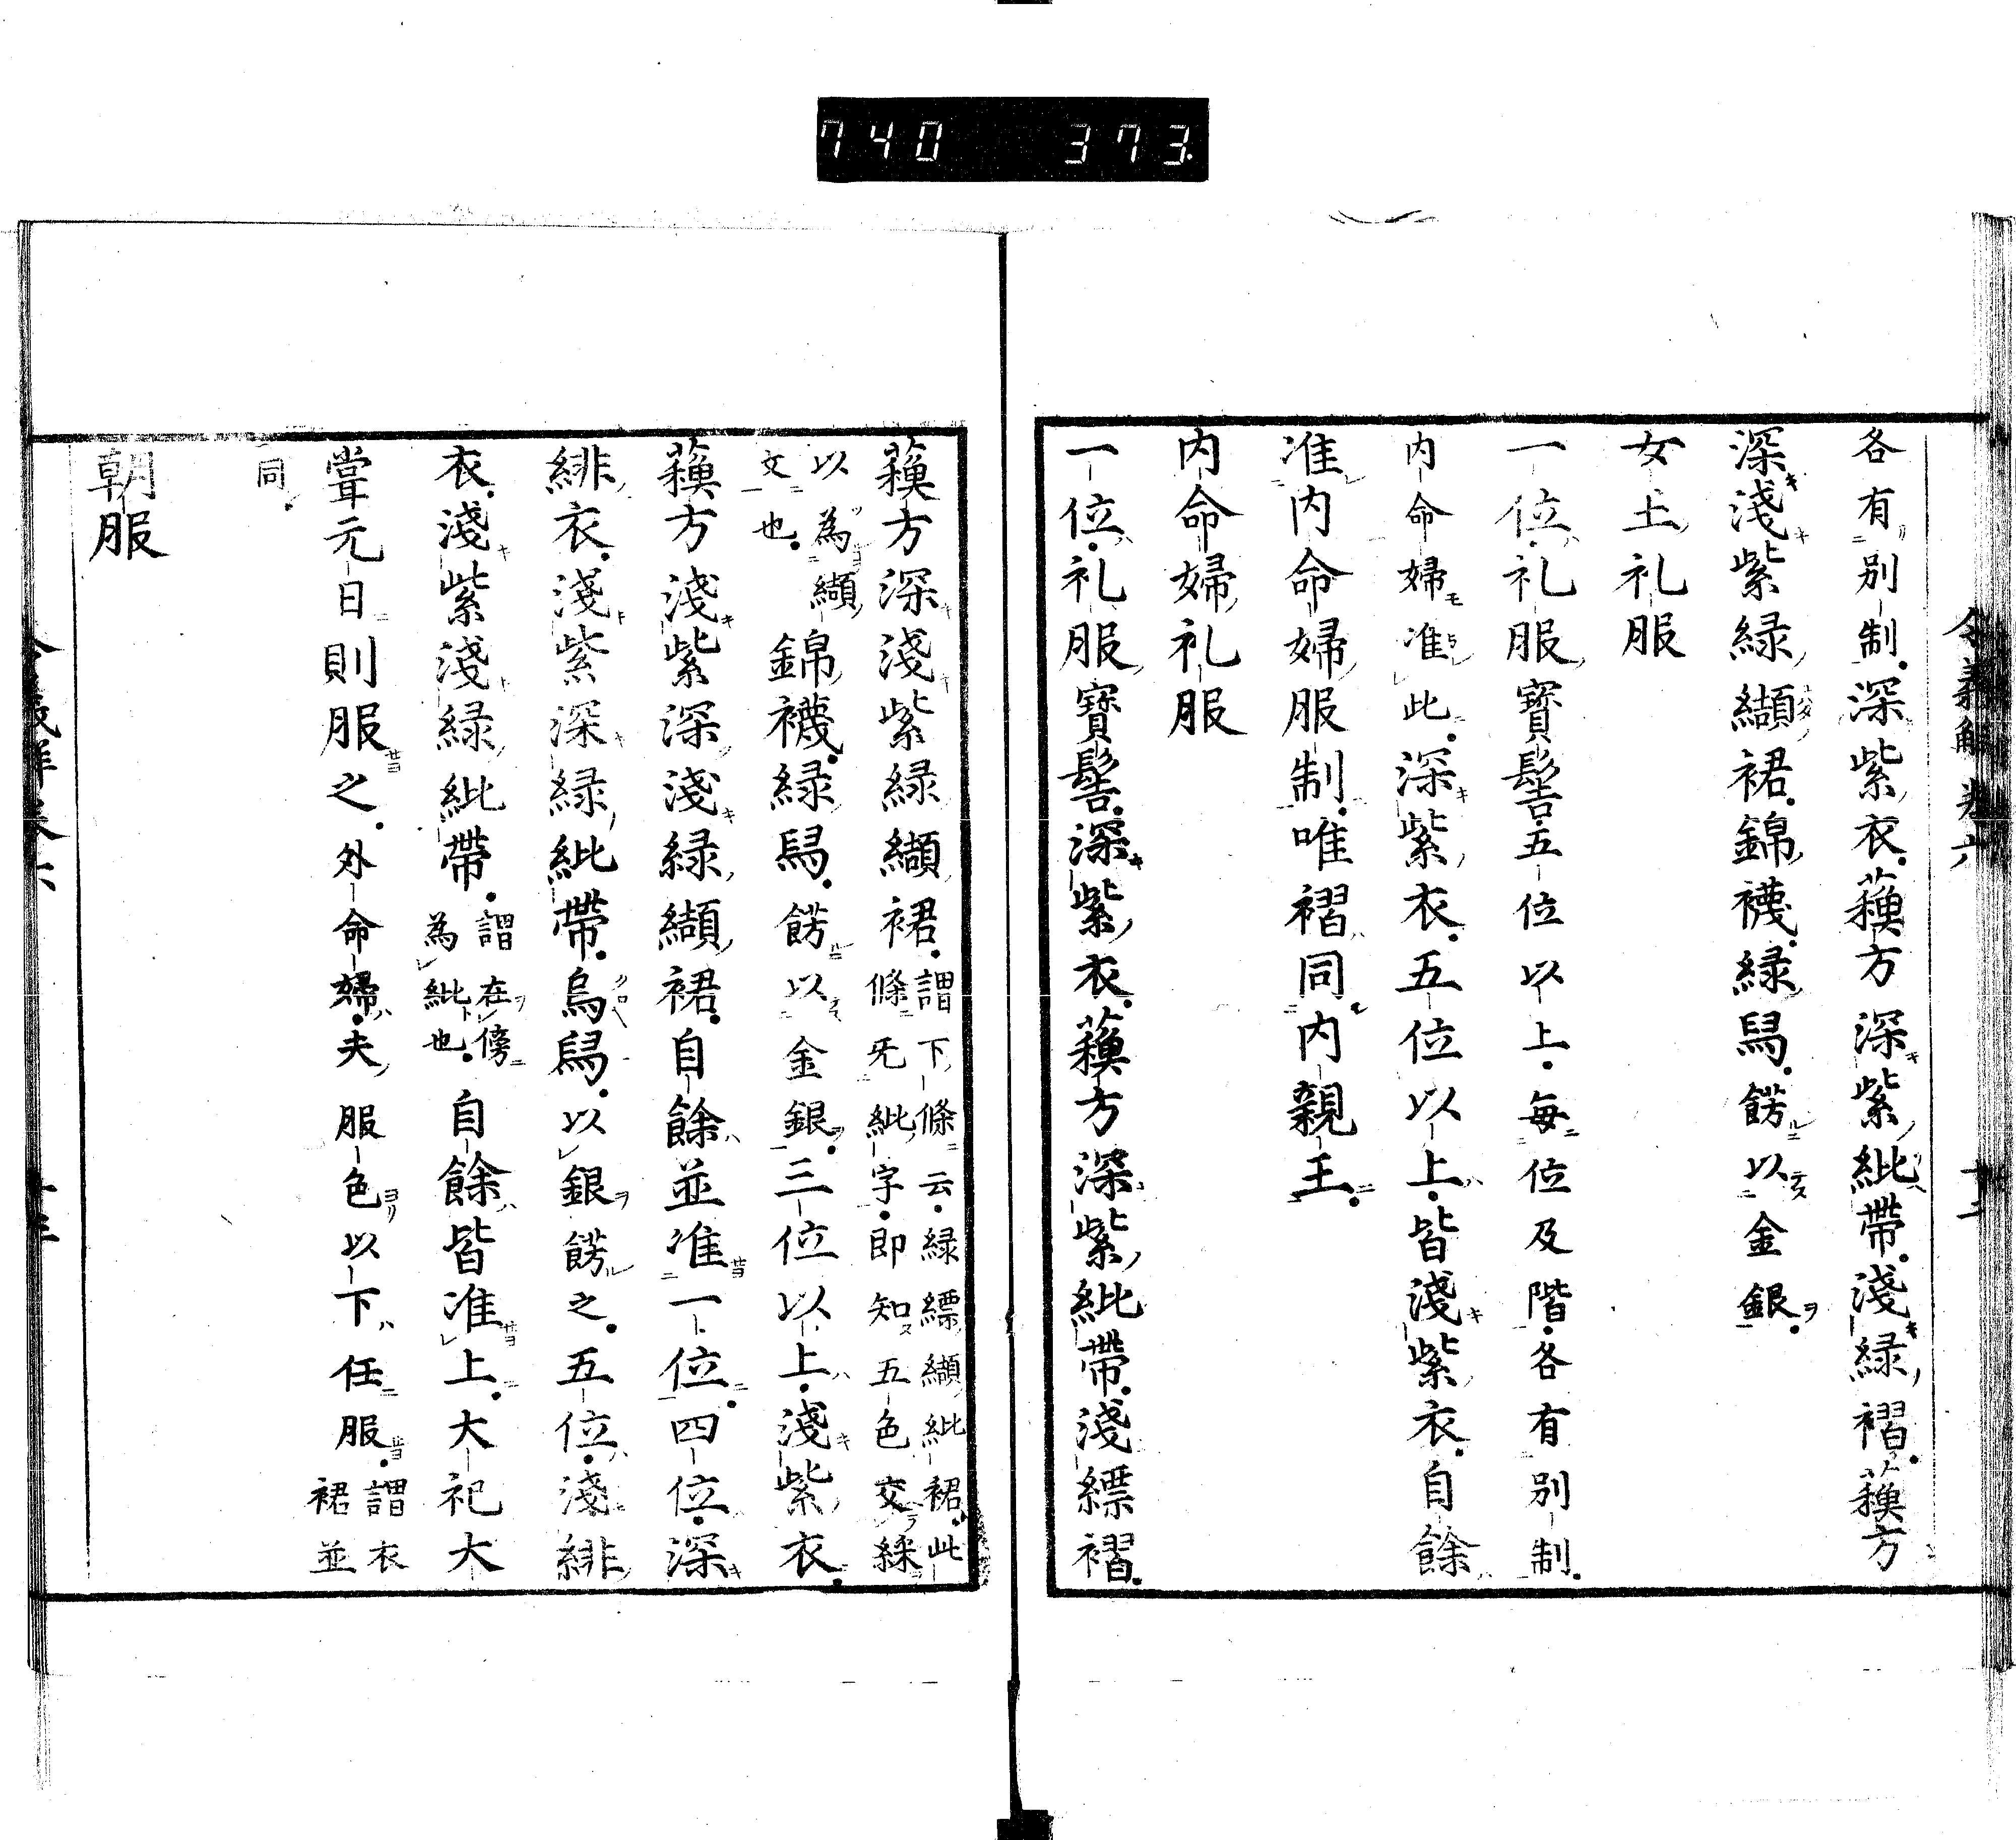 740 373
令義解卷六 十二
各有別制深紫衣蘓方深紫紕帶淺緑褶蘓方
深淺紫緑纈裙錦襪緑舄餝以金銀
女王礼服
一位礼服寳髻五位以上毎位及階各有別制
内命婦准此深紫衣五位以上皆淺紫衣自餘
准内命婦服制唯褶同内親王
内命婦礼服
一位礼服寳髻深紫衣蘓方深紫紕帶淺縹褶
蘓方深淺紫緑纈裙謂下條云緑縹纈紕裙此條旡紕字即知五色交綵
以為纈文也錦襪緑舄餝以金銀三位以上淺紫衣
蘓方淺紫深淺緑纈裙自餘並准一位四位深
緋衣淺紫深緑紕帶烏舄以銀餝之五位淺緋
衣淺紫淺緑紕帶謂在傍為紕也自餘皆准上大祀大
甞元日則服之外命婦夫服色以下任服謂衣裙並
同
朝服